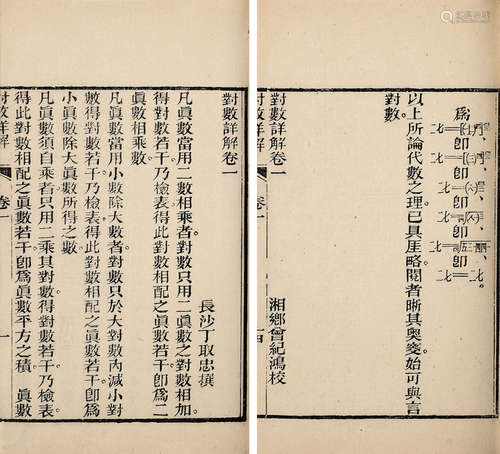 以上所論代數之理已具厓略。閱者晰其奧窔始可與言
對數。
對數詳解卷一 湘鄉曾紀鴻校
對數詳解 卷一
對數詳解卷一
長沙丁取忠撰
凡眞數當用二數相乘者。對數只用二眞數之對數相加。
得對數若干。乃檢表。得此對數相配之眞數若干。卽爲二
眞數相乘數。
凡眞數當用小數除大數者。對數只於大對數內減小對
數。得對數若干。乃檢表。得此對數相配之眞數若干。卽爲
小眞數除大眞數所得之數。
凡眞數須自乘者。只用二乘其對數。得對數若干。乃檢表。
得此對數相配之眞數若干。卽爲眞數平方之積。 眞數
對數詳解 卷一 一